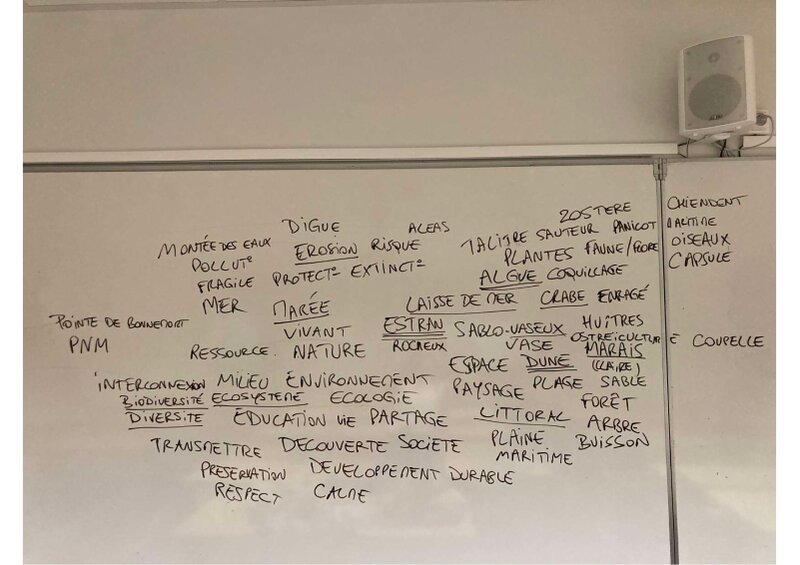 ZOSTERE CHIENDENT
DIGUE ALEAS TALITRE SAUTEUR PANICOT
MONTÉE DES EAUX EROSION RISQUE PLANTES FAUNE/FLORE OISEAUX
POLLUT° FRAGILE PROTECT° EXTINCT° ALGUE COQUILLAGE CAPSULE
MER MARÉE LAISSE DE MER CRABE ENRAGÉ
POINTE DE VIVANT ESTRAN SABLO-VASEUX HUÎTRES
PNM RESSOURCE NATURE ROCHEUX VASE OSTREICULTURE COUPELLE
ESPACE DUNE MARAIS
(CLAIRE)
INTERCONNEXION MILIEU ENVIRONNEMENT PAYSAGE PLAGE SABLE
BIODIVERSITÉ ECOSYSTEME ECOLOGIE FORÊT
DIVERSITE ÉDUCATION VIE PARTAGE LITTORAL ARBRE
TRANSMETTRE DECOUVERTE SOCIÉTÉ PLAINE BUISSON
MARITIME
PRESERVATION DEVELOPPEMENT DURABLE
RESPECT CALME